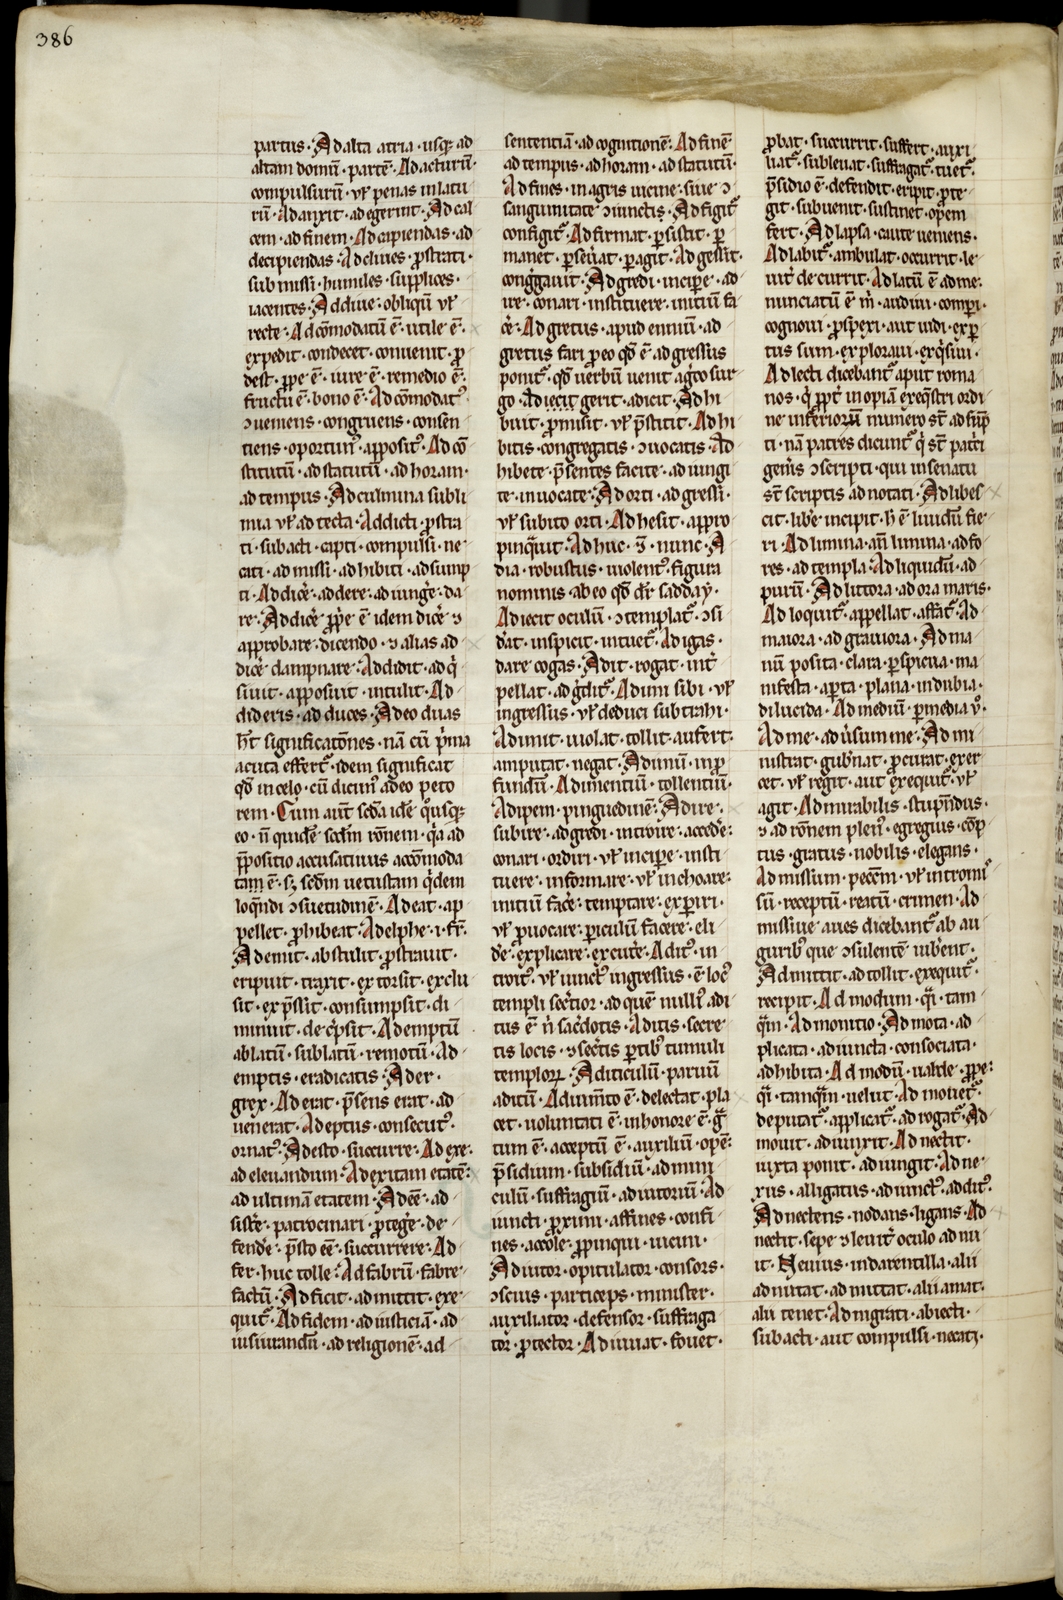 386
partus· Ad alta atria· usq; ad
altam domū· partē· Ad acturū·
compulsurū· ul̄ penas inlatu
rū· Adaurit· adegerint· Ad cal
cem· ad finem· Ad capiendas· ad
decipiendas· Adclines· ꝓstrati·
submissi· humiles· supplices·
iacentes· Addiue· obliqū ul̄
recte· Adcōmodatū ē· utile ē·
expedit· condecet· conuenit· ꝓ
dest· ꝓpe ē· iure ē· remedio ē·
fructu ē· bono ē· Adcōmodatꝰ
ↄueniens· congruens· consen
tiens· oportunꝰ· appositꝰ· Ad cō
stitutū· ad statutū· ad horam·
ad tempus· Ad culmina subli
mia ul̄ ad tecta· Addicti· ꝓstra
ti· subacti· capti· compulsi· ne
cati· admissi· adhibiti· adsump
ti· Addicē· addere· adiungē· da
re· Addicē ꝓpe ē idem dicē ⁊
approbare· dicendo· ⁊ alias ad
dicē dampnare· Addidit· adq̄
siuit· apposuit· intulit· Ad
dideris· ad duces· Adeo duas
hn̄t significatōnes· nā cū p̄ma
acuta effert᷑ idem significat
qd̄ in celo· cū dicimꝰ adeo peto
rem· Cum aut̄ sedā idē quusq;
eo· n̄ quidē sedm̄ rōnem· q̄a ad
p̄positio accusatiuus accōmoda
tam ē· s; sedm̄ uetustam q̄dem
loq̄ndi ↄsuetudinē· Adeat· ap
pellet· ꝓhibeat· Adelphe· i· fr̄·
Ademit· abstulit· ꝓstrauit·
eripuit· traxit· extorsit· exclu
sit· exp̄ssit· consumpsit· di
minuit· decēpsit· Ademptū
ablatū· sublatū· remotū· Ad
emptis· eradicatis· Ader·
grex· Aderat· p̄sens erat· ad
uenerat· Adeptus· consecutꝰ·
ornatꝰ· Adesto· succurre· Adexe·
ad eleuandum· Adexitam etatē·
ad ultimā etatem· Adeē· ad
sistē· patrocinari· ꝓtegē· de
fendē· p̄sto eē· succurrere· Ad
fer· huc tolle· Adfabrū· fabre
factū· Adficit· admittit· exe
quit᷑· Adfidem· adiusticiā· ad
iusiurandū· ad religionē· ad
sententiā· ad cognitionē· Adfinē
ad tempus· ad horam· ad statutū·
Adfines· in agris uicine· siue ↄ
sanguinitate ↄiunctis· Adfigit᷑
configit᷑· Adfirmat· ꝑsistit· ꝑ
manet· ꝑseūat· ꝑagit· Adgessit·
congḡauit· Adgredi· incipe· ad
ire· conari· instituere· initiū fa
cē· Adgretus· apud ennium· ad
gretus fari ꝓ eo qd̄ ē adgressus
ponit᷑· qd̄ uerbū uenit agreosur
go· Adiecit gerit· adicit· Adhi
buit· ꝓmisit· ul̄ p̄stitit· Adhi
bitis· congregatis· ↄuocatis· Ad
hibete· p̄sentes facite· adiungi
te· inuocate· Adorti· adgressi·
ul̄ subito orti· Adhesit· appro
pinq̄uit· Adhuc· ⁊· nunc· A
dia· robustus· uiolentꝰ· figura
nominis· abeo qd̄ dr̄ sadday·
Adiecit oculū· ↄtemplat᷑· ↄsi
dat· inspicit· intuet᷑· Adigas·
dare cogas· Adit· rogat· int̄
pellat· adg̅dit᷑· Adimi sibi· ul̄
ingressus· ul̄ deduci subtrahi·
Adimit· uiolat· tollit· aufert·
amputat· negat· Adimū· inp
fundū· Adimentiū· tollentiū·
Adipem· pinguedinē· Adire·
subire· adgredi· introire· accedē·
conari· ordiri· ul̄ incipe· insti
tuere· informare· ul̄ inchoare·
initiū facē· temptare· exꝑiri·
ul̄ ꝓuocare· ꝑiculū facere· eli
dē· explicare· excutē· Aditꝰ· in
troitꝰ· ul̄ iunctꝰ ingressus· ē locꝰ
templi sec̄tior· ad quē nullꝰ adi
tus ē n̄ sac̄dotis· Aditis· secre
tis locis· ⁊ sec̄tis ꝑtibꝰ tumuli
temploꝝ· Aditiculū· paruū
aditū· Adiuuāto ē· delectat· pla
cet· uoluntati ē· inhonore ē· g̅
tum ē· acceptū ē· auxiliū· opē·
p̄sidium· subsidiū· admini
culū· suffragiū· adiutoriū· Ad
iuncti· ꝓximi· affines· confi
nes· accole· ꝓpinqui· uicini·
Adiutor· opitulator· consors·
ↄscius· particeps· minister·
auxiliator· defensor· suffraga
tor· ꝓtector· Adiuuat· fouet·
ꝓbat· succurrit· suffert· auxi
liat᷑· subleuat· suffragat᷑· tuet᷑·
p̄sidio ē· defendit· eripit· ꝓte
git· subuenit· sustinet· opem
fert· Adlapsa· caute ueniens·
Adlabit᷑· ambulat· occurrit· le
uit᷑ decurrit· Adlatū ē ad me·
nunciatū ē m̄· audiui· compi·
cognoui· ꝓspexi· aut uidi· exꝑ
tus sum· exploraui· exq̄siui·
Adlecti dicebant᷑ aput roma
nos· q̄ ꝓpt᷑ inopiā exeq̄stri ordi
ne inferiorum numero st̄ adsūp
ti· nā patres dicunt᷑ q̄ st̄ patrī
gen̄is ↄscripti· qui insenatu
st̄ scriptis adnotati· Adlibes
cit· libē incipit· h̄ ē liuidū fie
ri· Adlumina· an̄ lumina· adfo
res· ad templa· Adliquidū· ad
purū· Ad littora· ad ora maris·
Adloquit᷑· appellat· affat᷑· Ad
maiora· ad grauiora· Adma
nū posita· clara· ꝑspicua· ma
nifesta· aꝑta· plana· indubia·
dilucida· Admediū· ꝑmedia ū·
Ad me· ad ūsum me· Admi
nistrat· gubn̄at· ꝓcurat· exer
cet· ul̄ regit· aut exequit᷑· ul̄
agit· Admirabilis· stupn̄dus·
⁊ ad rōnem plenꝰ· egregius· cōp
tus· gratus· nobilis· elegans·
Admissum· peccm̄· ul̄ intromi
sū· receptū· reatū· crimen· Ad
missiue aues dicebant᷑ ab au
guribꝰ que ↄsulentē iubēnt·
Admittit· adtollit· exequit᷑·
recipit· Admodum· q̄i· tam
q̄m· Admonitio· Admota· ad
plicata· adiuncta· consociata·
adhibita· Admodū· ualde· ꝓpe·
q̄i· tamq̄m· uelut· Admouet᷑·
deputat᷑· applicat᷑· adrogat᷑· Ad
mouit· adiunxit· Adnectit·
iuxta ponit· adiungit· Adne
xus· alligatus· adiunctꝰ· additꝰ·
Adnectens· nodans· ligans· Ad
nectit· sepe ⁊ leuit᷑ oculo adnu
it· Neuius· indarentilla· alii
adnutat· admittat· alii amat·
alii tenet· Admigrati· abiecti·
subacti· aut compulsi· necati·